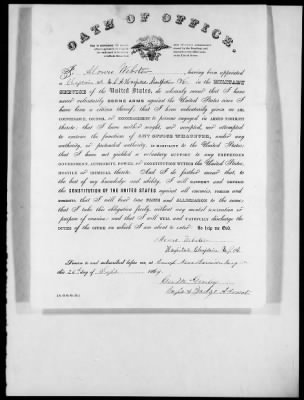 OATH OF OFFICE.
I, Alonzo Webster having been appointed
a Chaplain at U.S.A. Hospital, Brattleboro Vt. in the MILITARY
SERVICE of the United States, do solemnly swear that I have
never voluntarily BORNE ARMS against the United States since I
have been a citizen thereof; that I have voluntarily given no AID,
COUNTENANCE, COUNSEL, or ENCOURAGEMENT to persons engaged in ARMED HOSTILITY
thereto; that I have neither sought, nor accepted, nor attempted
to exercise the functions of ANY OFFICE WHATEVER, under any
authority, or pretended authority, in HOSTILITY to the United States;
that I have not yielded a voluntary SUPPORT to any PRETENDED
GOVERNMENT, AUTHORITY, POWER, or CONSTITUTION WITHIN THE United States,
HOSTILE or INIMICAL thereto. And I do further swear that, to
the best of my knowledge and ability, I will SUPPORT and DEFEND
the CONSTITUTION OF THE UNITED STATES against all enemies, FOREIGN and
DOMESTIC; that I will bear true FAITH and ALLEGIANCE to the same;
that I take this obligation freely, without any mental reservation or
purpose of evasion; and that I will WELL and FAITHFULLY DISCHARGE the
DUTIES of the OFFICE on which I am about to enter: So help me God.
Alonzo Webster
Hospital Chaplain
Sworn to and subscribed before me, at
this 26th day of Sept. 1864